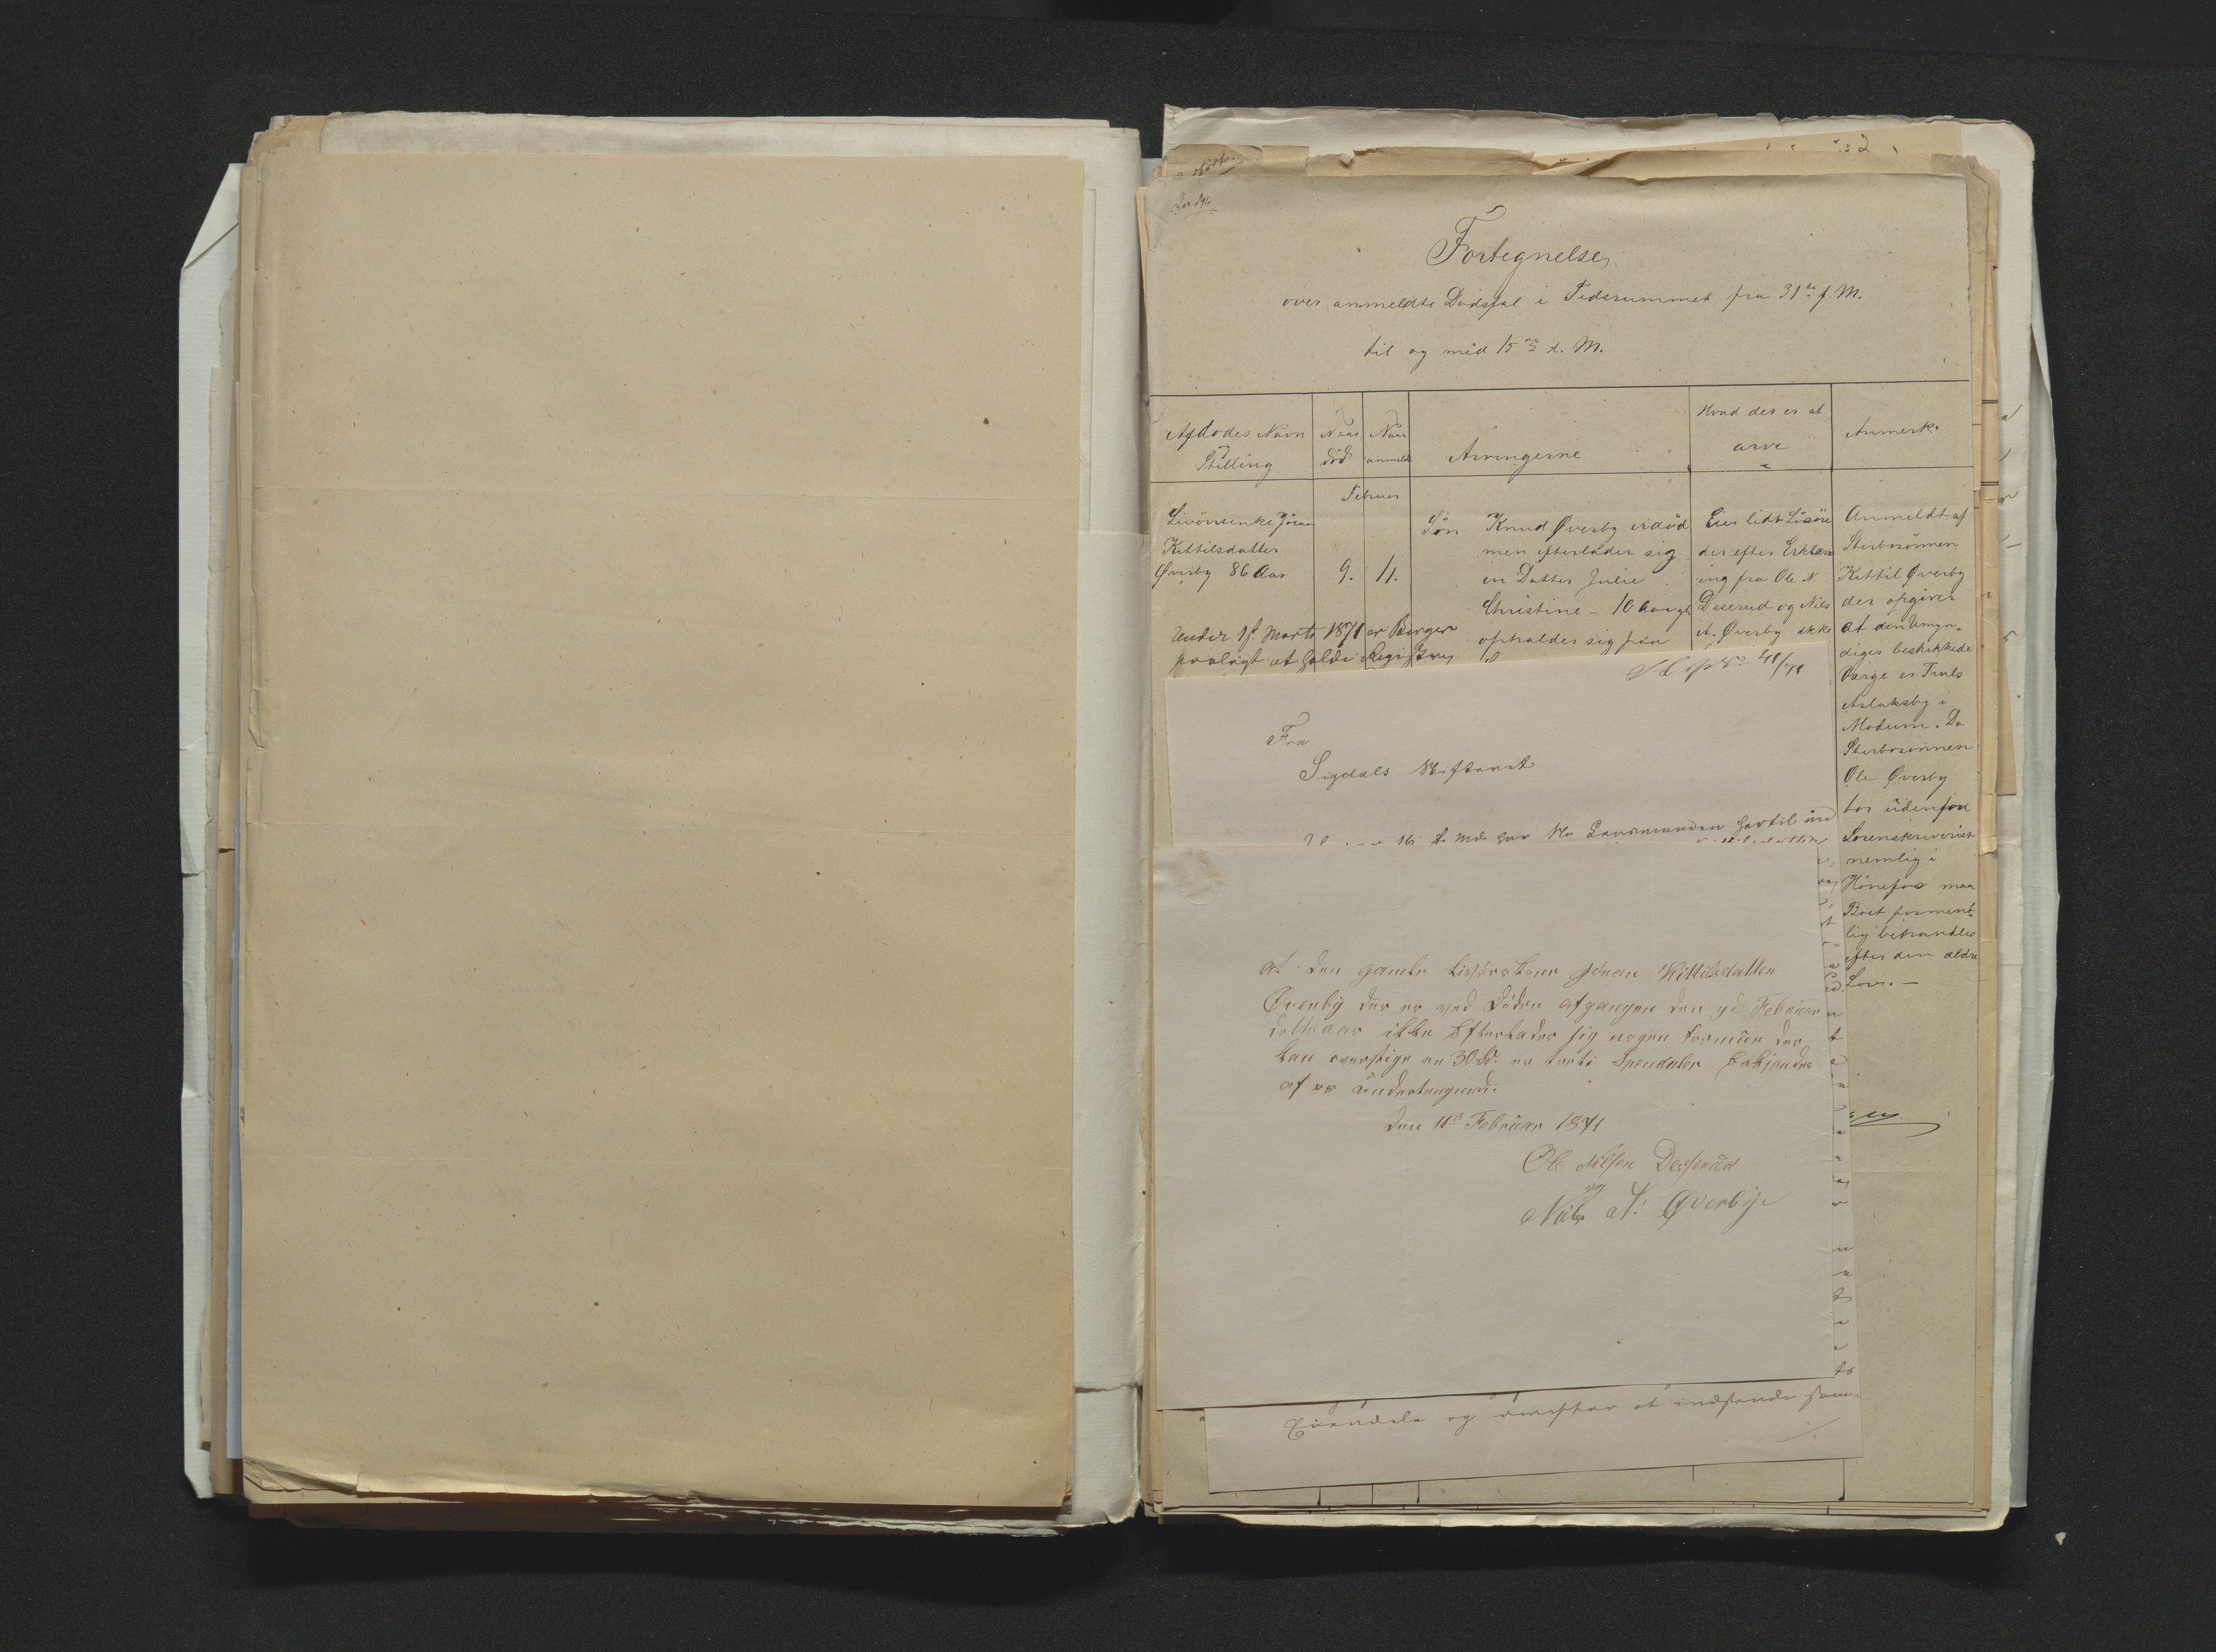 Fortegnelse
over anmeldte Dødsfal i Tidsrummet fra 31te f. M.
til og med 15de d. M.
Afdødes Navn
Stilling
Naar
død
Naar
anmeldt
Arvingerne
Hvad der er at
arve
Anmerk.
Februar
Livörsenke Jöran
Kittilsdatter
Øverby 86 Aar
9.
11.
Søn Knud Øverby er død
men efterlader sig
en Datter Julie
Christine - 10 Aar gl
opholder sig paa
Eier lidt Lösöre
der efter Erklær
ing fra Ole N.
Deserud og Nils
A. Øverby ikke
Anmeldt af
Sterbosönnen
Kittil Øverby
der opgiver
at den Umyn-
diges beskikkede
Værge er Truls
Aslaksby i
Modum. Da
Sterbosönnen
Ole Øverby
bor udenfor
Sorenskriveriet
nemlig i
Hönefos maa
Boet forment-
lig behandles
efter den ældre
Lov. -
Under 1s. Marts 1871 er Borger
paalagt at holde Registrering
Fra
Sigdals Skifteret
16 d. Md. har Hr Lensmanden hertil ind
at den gamle Livörsekone Jöran Kittilsdatter
Øverby der er ved Døden afgangen den 9de Februar
dette aar ikke Efterlader sig nogen Formue der
kan overstige en 30 Sp. er treti Speudaler Erkjendes
af os Undertegnede.
den 11te Februar 1871
Ole Nilsen Desserud
og
Nils A: Øverbye
Eiendele og derefter at indsende sam-